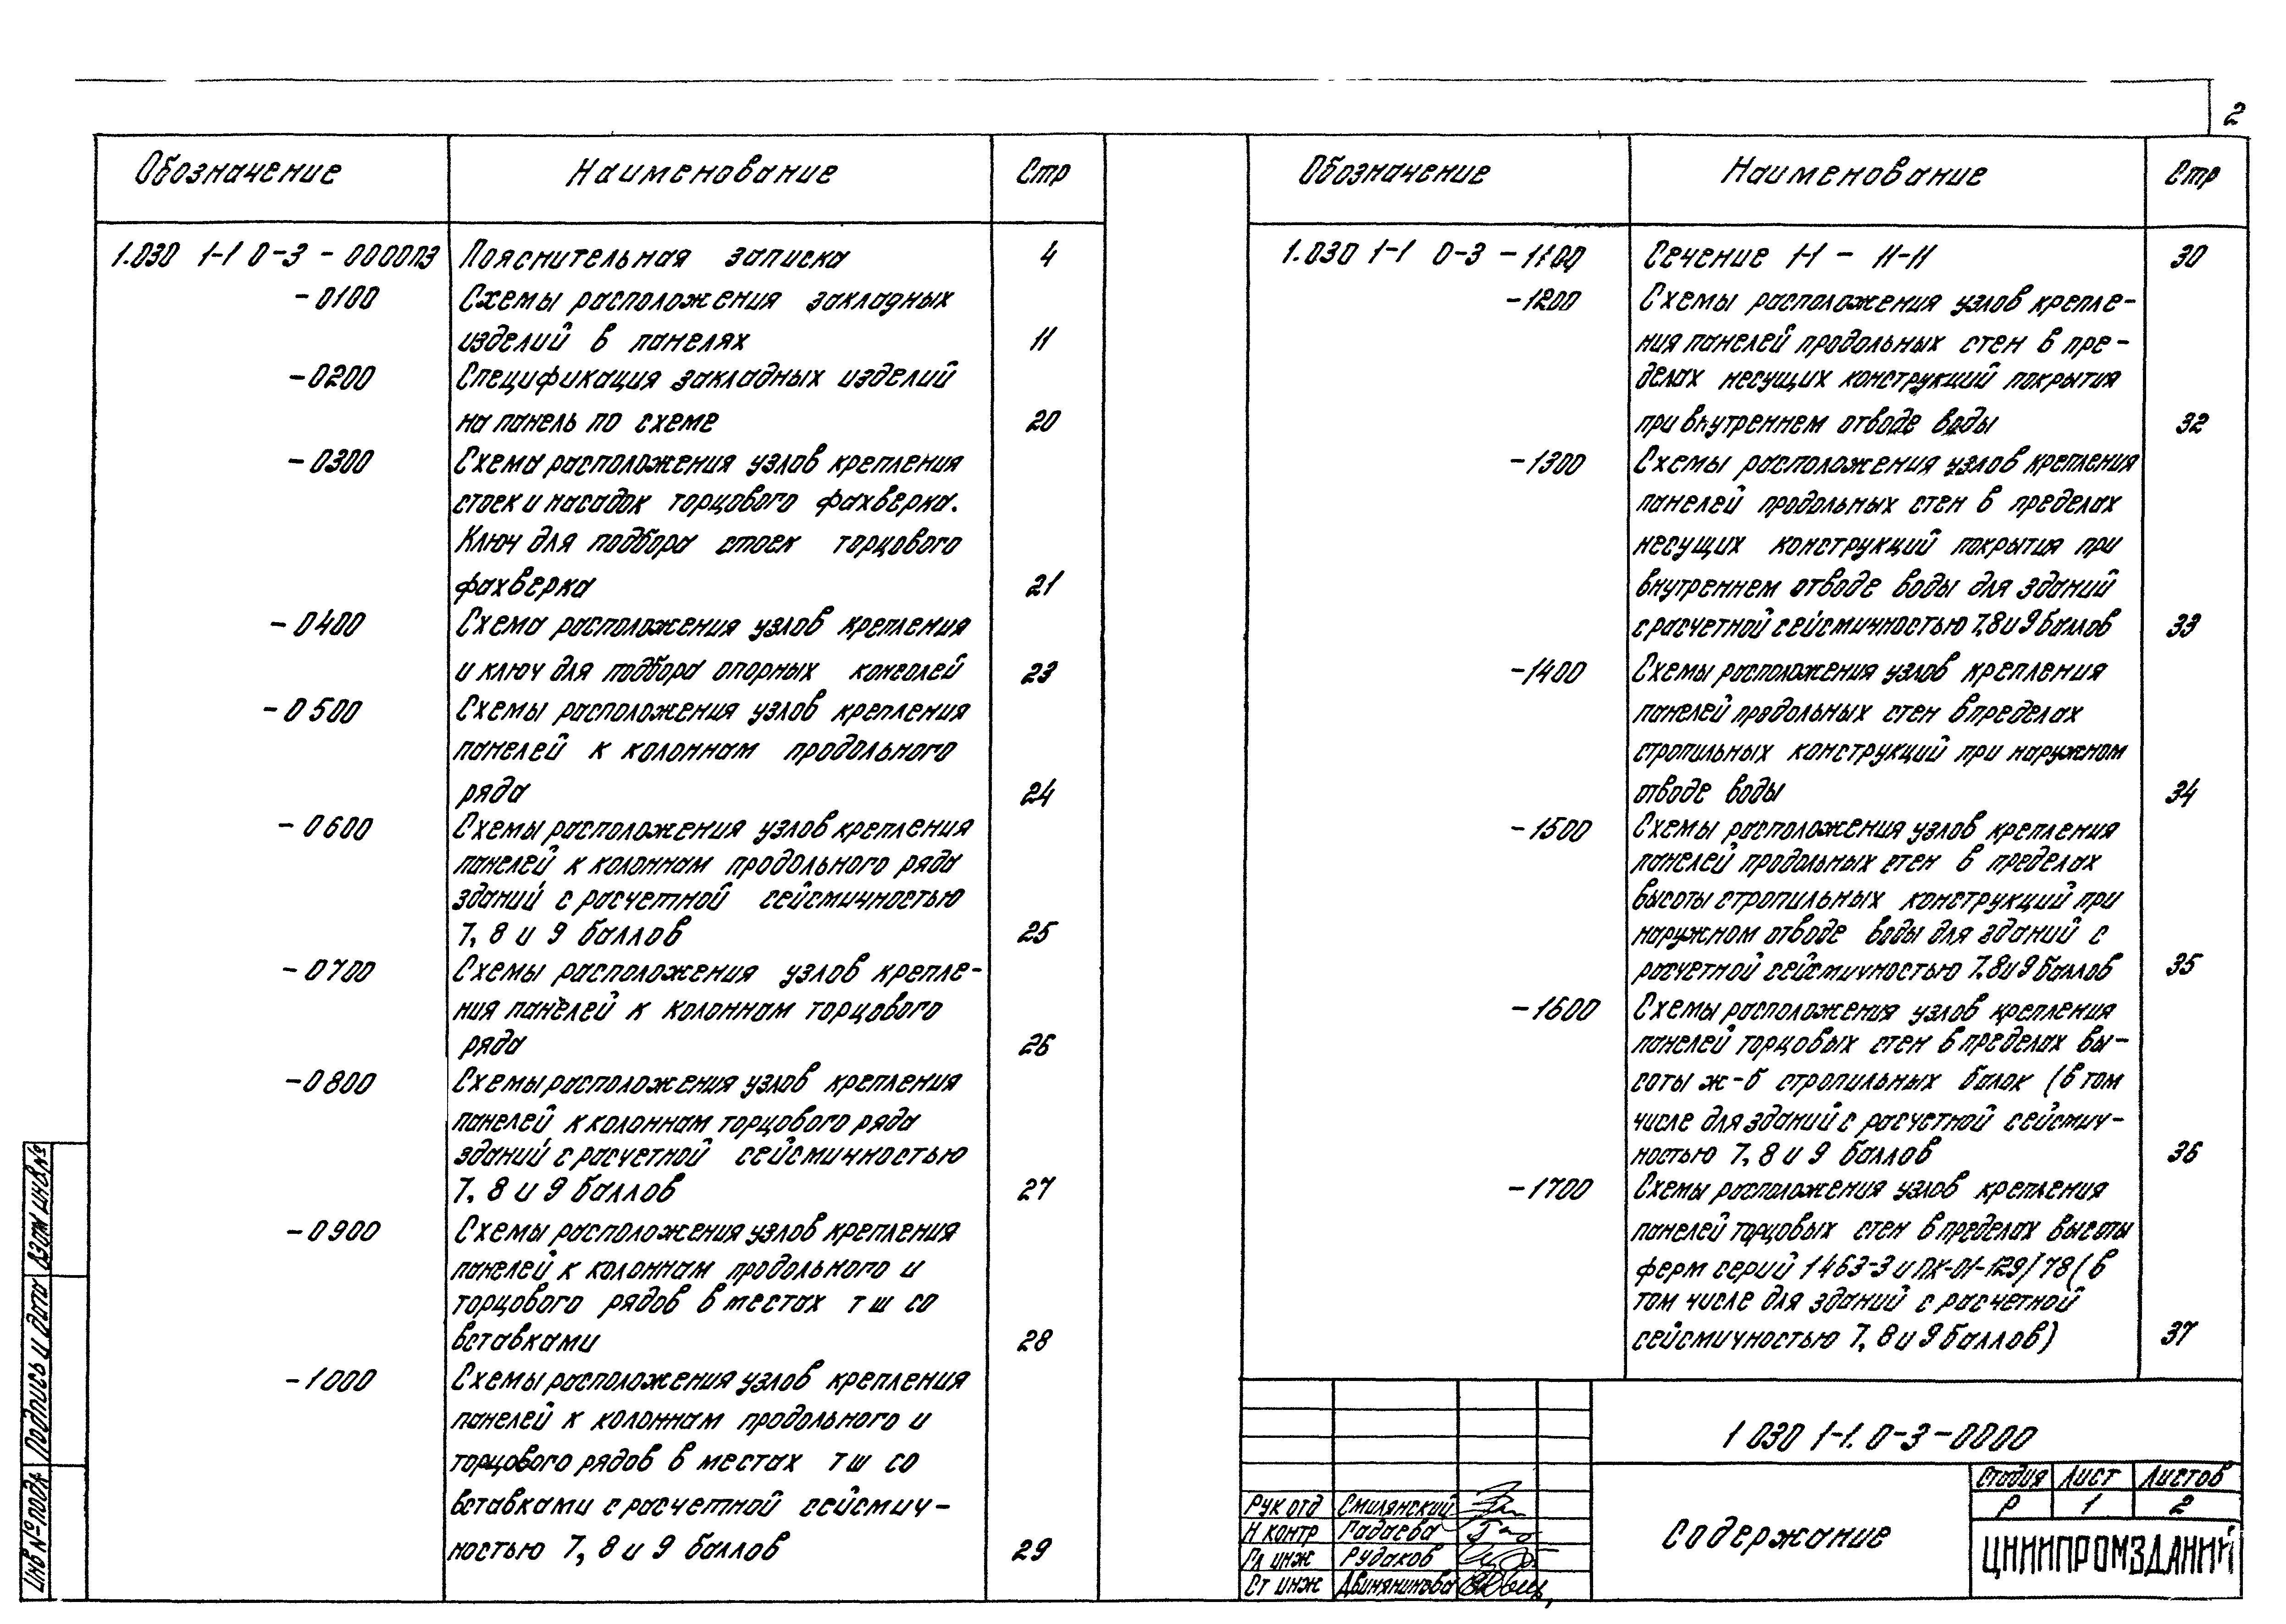 2
Обозначение Наименование Стр
1.030 1-1 0-3 - 0000ПЗ Пояснительная записка 4
- 0100 Схемы расположения закладных
изделий в панелях 11
- 0200 Спецификация закладных изделий
на панель по схеме 20
- 0300 Схема расположения узлов крепления
стоек и насадок торцового фахверка.
Ключ для подбора стоек торцового
фахверка 21
- 0400 Схема расположения узлов крепления
и ключ для подбора опорных консолей 23
- 0500 Схемы расположения узлов крепления
панелей к колоннам продольного
ряда 24
- 0600 Схемы расположения узлов крепления
панелей к колоннам продольного ряда
зданий с расчетной сейсмичностью
7, 8 и 9 баллов 25
- 0700 Схемы расположения узлов крепле-
ния панелей к колоннам торцового
ряда 26
- 0800 Схемы расположения узлов крепления
панелей к колоннам торцового ряда
зданий с расчетной сейсмичностью
7, 8 и 9 баллов 27
- 0900 Схемы расположения узлов крепления
панелей к колоннам продольного и
торцового рядов в местах т ш со
вставками 28
- 1000 Схемы расположения узлов крепления
панелей к колоннам продольного и
торцового рядов в местах т ш со
вставками с расчетной сейсмич-
ностью 7, 8 и 9 баллов 29
Обозначение Наименование Стр
1.030 1-1 0-3 - 1100 Сечение 1-1 - 11-11 30
- 1200 Схемы расположения узлов крепле-
ния панелей продольных стен в пре-
делах несущих конструкций покрытия
при внутреннем отводе воды 32
- 1300 Схемы расположения узлов крепления
панелей продольных стен в пределах
несущих конструкций покрытия при
внутреннем отводе воды для зданий
с расчетной сейсмичностью 7,8 и 9 баллов 33
- 1400 Схемы расположения узлов крепления
панелей продольных стен в пределах
стропильных конструкций при наружном
отводе воды 34
- 1500 Схемы расположения узлов крепления
панелей продольных стен в пределах
высоты стропильных конструкций при
наружном отводе воды для зданий с
расчетной сейсмичностью 7,8 и 9 баллов 35
- 1600 Схемы расположения узлов крепления
панелей торцовых стен в пределах вы-
соты ж-б стропильных балок (в том
числе для зданий с расчетной сейсмич-
ностью 7, 8 и 9 баллов 36
- 1700 Схемы расположения узлов крепления
панелей торцовых стен в пределах высоты
ферм серий 1 463-3 и ПК-01-129/78 (в
том числе для зданий с расчетной
сейсмичностью 7, 8 и 9 баллов) 37
1 030 1-1. 0-3-0000
Рук отд Смилянский
Н контр Гадаева
Гл инж Рудаков
Ст инж Двинянинова
Содержание
Стадия Лист Листов
Р 1 2
ЦНИИПРОМЗДАНИЙ
Взам инв №
Подпись и дата
Инв № подл